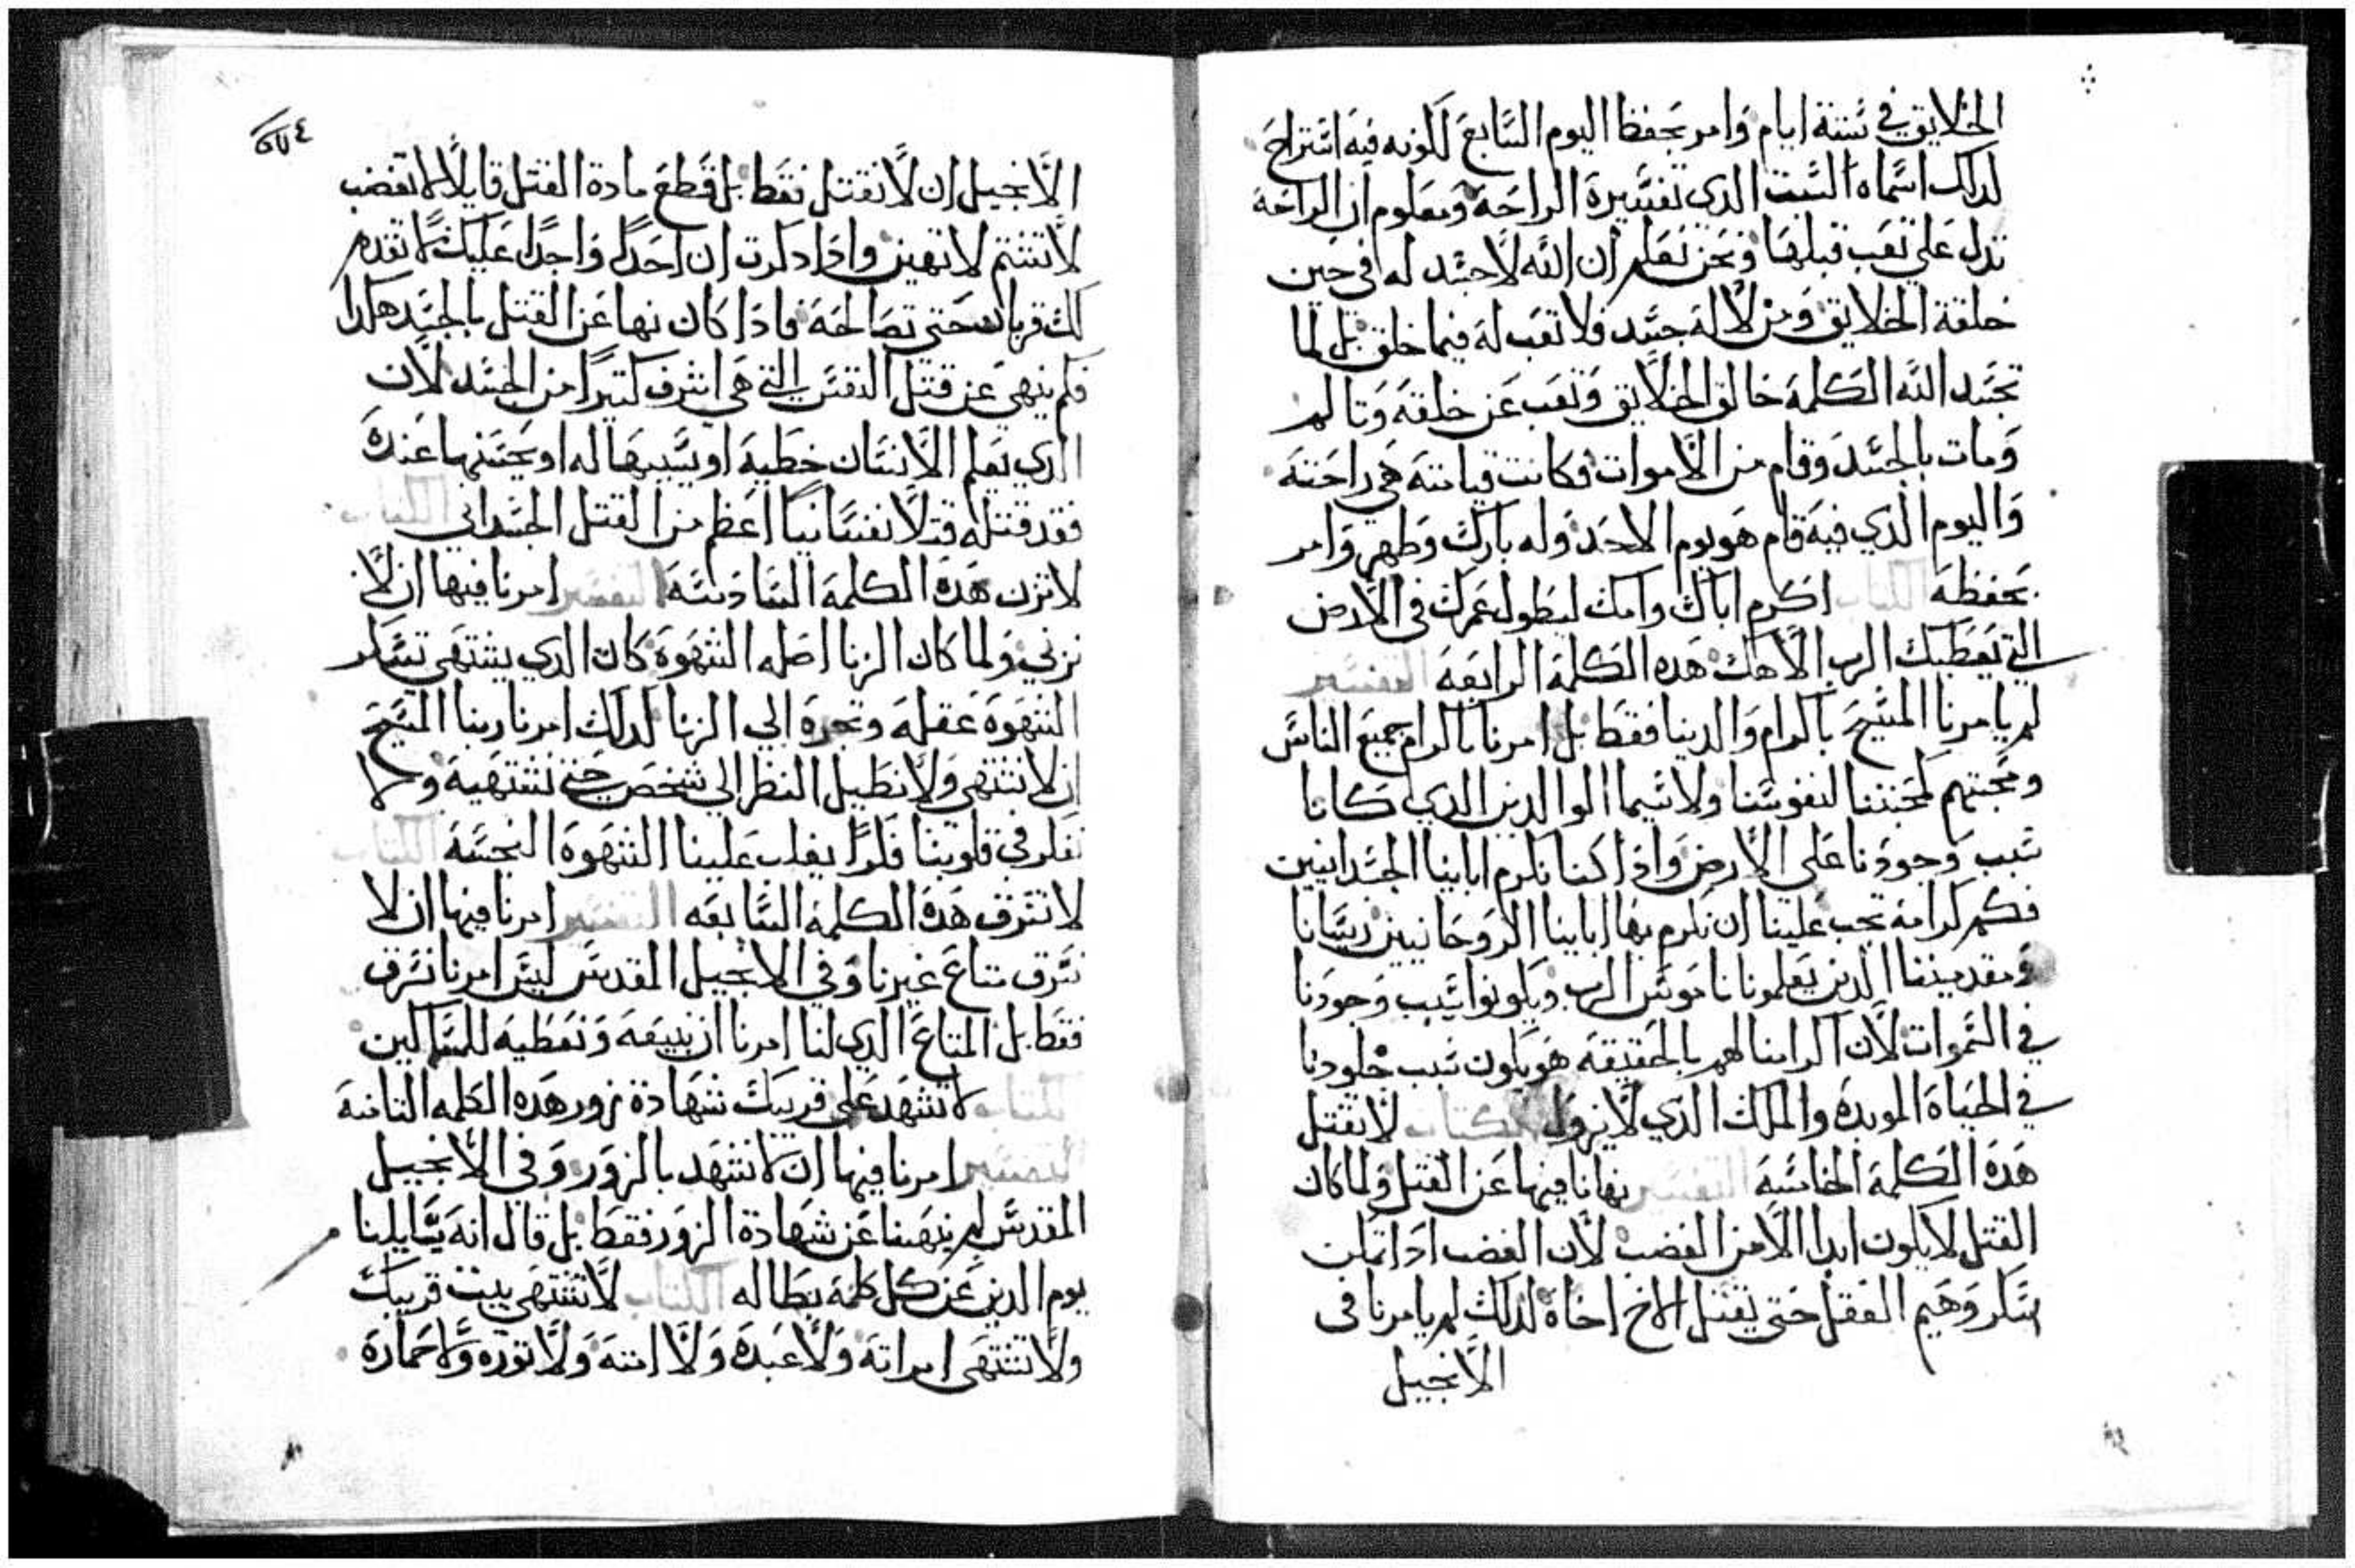 الخلايق في ستة ايام وامر بحفظ اليوم السابع لكونه فيه استراح
لدلك اسماه السبت الدي تفسيره الراحة ومعلوم ان الراحة
تدل علي تعب قبلها ونحن نعلم ان الله لا جسد له في حين
خلقة الخلايق ومن لا له جسد فلا تعب له فيما خلق بل لما
تجسد الله الكلمة خالق الخلايق وتعب عن خلقته وتالم
ومات بالجسد وقام من الاموات فكانت قيامته هي راحته
واليوم الدي فيه قام هو يوم الاحد وله بارك وطهر وامر
بحفظه الكتاب اكرم اباك وامك ليطول عمرك في الارض
التي يعطيك الرب الاهك هده الكلمة الرابعة التفسير
لم يامرنا المسيح باكرام والدينا فقط بل امرنا باكرام جميع الناس
ومحبتهم كمحبتنا لنفوسنا ولاسيما الوالدين الدي كانا
سبب وجودنا علي الارض وادا كنا نكرم ابابنا الجسدانيين
فكم كرامة تجب علينا ان نكرم بها ابابينا الروحانيين ريسانا
ومقدميننا الدين يعلمونا ناموس الرب ويكونوا سبب وجودنا
في السموات لان اكرامنا لهم بالحقيقة هو يكون سبب خلودنا
في الحياة الموبدة والملك الدي لا يزول الكتاب لا تقتل
هده الكلمة الخامسة التفسير نهانا فيها عن القتل ولما كان
القتل لا يكون ابدا الا من الغضب لان الغضب ادا تمكن
سكر وهيم العقل حتي يقتل الاخ اخاه لدلك لم يامرنا في
الانجيل
٢٧٤
الانجيل ان لا نقتل فقط بل قطع مادة القتل قايلا لا تغضب
لا تشتم لا تهين وادا دكرت ان احدا واجدا عليك لا تقدم
لك قربان حتي تصالحه فادا كان نها عن القتل بالجسد هكدا
فكم ينهي عن قتل النفس التي هي اشرف كتيرا من الجسد لان
الدي يعلم الانسان خطية او يسببها له او يحسنها عنده
فقد قتله قتلا نفسانيا اعظم من القتل الجسداني الكتاب
لا تزن هده الكلمة السادسة التفسير امرنا فيها ان لا
نزني ولما كان الزنا اصله الشهوة كان الدي يشتهي تسكر
الشهوة عقله وتجره الي الزنا لدلك امرنا ربنا المسيح
ان لا نشتهي ولا نطيل النظر الي شخص حتي نشتهيه ولا
نفكر في قلوبنا فكرا يغلب علينا الشهوة النجسة الكتاب
لا تسرق هده الكلمة السابعه التفسير امرنا فيها ان لا
نسرق متاع غيرنا وفي الانجيل المقدس ليس امرنا نسرق
فقط بل المتاع الدي لنا امرنا ان نبيعه ونعطيه للمساكين
الكتاب لا تشهد علي قريبك شهادة زور هده الكلمه التامنة
التفسير امرنا فيها ان لا نشهد بالزور وفي الانجيل
المقدس لم ينهينا عن شهادة الزور فقط بل قال انه يسايلنا
يوم الدين عن كل كلمة بطاله الكتاب لا تشتهي بيت قريبك
ولا تشتهي امراته ولا عبده ولا امته ولا توره ولا حماره